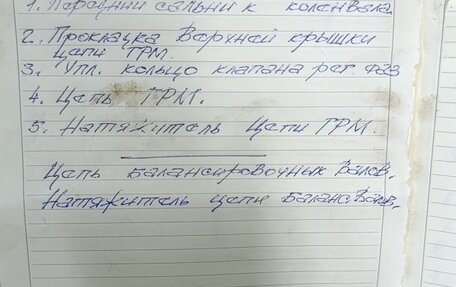 1. Передний сальник коленвала
2. Прокладка Верхней крышки
цепи ГРМ.
3. Упл. кольцо клапана рег. Фаз
4. Цепь ГРМ.
5. Натяжитель Цепи ГРМ.
Цепь балансировочных Валов.
Натяжитель цепи Баланс. Валов.